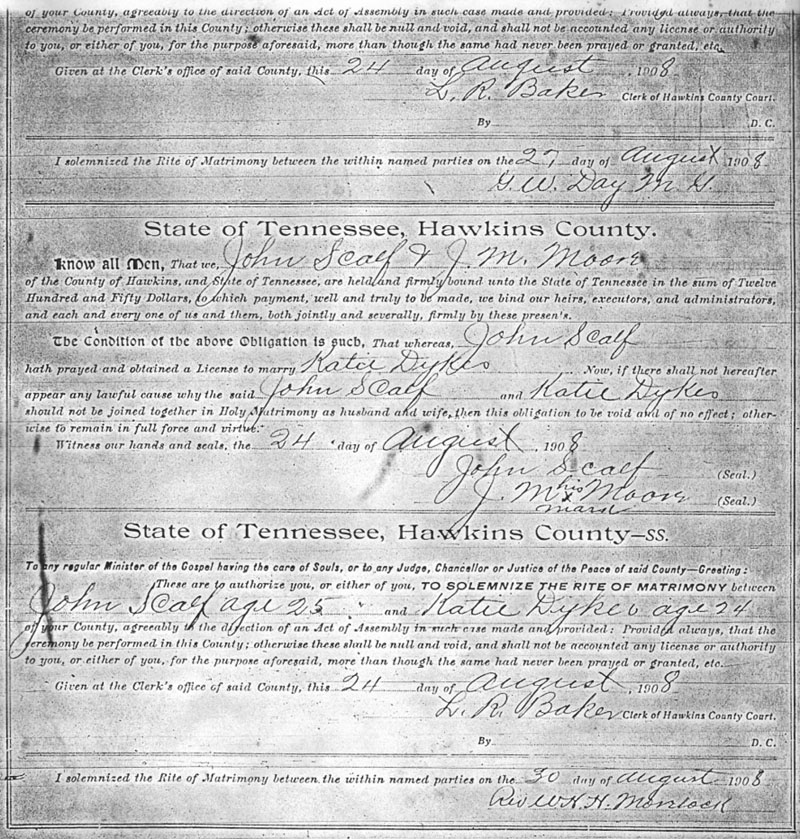 of your County, agreeably to the direction of an Act of Assembly in such case made and provided: Provided always, that the
ceremony be performed in this County; otherwise these shall be null and void, and shall not be accounted any license or authority
to you, or either of you, for the purpose aforesaid, more than though the same had never been prayed or granted, etc.
Given at the Clerk's office of said County, this 24 day of August, 1908
L. R. Baker Clerk of Hawkins County Court.
By D. C.
I solemnized the Rite of Matrimony between the within named parties on the 27 day of August 1908
G. W. Day M. G.
State of Tennessee, Hawkins County.
Know all Men, That we, John Scalf & J. M. Moore
of the County of Hawkins, and State of Tennessee, are held and firmly bound unto the State of Tennessee in the sum of Twelve
Hundred and Fifty Dollars, to which payment, well and truly to be made, we bind our heirs, executors, and administrators,
and each and every one of us and them, both jointly and severally, firmly by these presen's.
The Condition of the above Obligation is such, That whereas, John Scalf
hath prayed and obtained a License to marry Katie Dykes Now, if there shall not hereafter
appear any lawful cause why the said John Scalf and Katie Dykes
should not be joined together in Holy Matrimony as husband and wife, then this obligation to be void and of no effect; other-
wise to remain in full force and virtue.
Witness our hands and seals, the 24 day of August, 1908
John Scalf (Seal.)
J. M. his x mark Moore (Seal.)
State of Tennessee, Hawkins County—SS.
To any regular Minister of the Gospel having the care of Souls, or to any Judge, Chancellor or Justice of the Peace of said County—Greeting:
These are to authorize you, or either of you, TO SOLEMNIZE THE RITE OF MATRIMONY between
John Scalf age 25 and Katie Dykes age 24
of your County, agreeably to the direction of an Act of Assembly in such case made and provided: Provided always, that the
ceremony be performed in this County; otherwise these shall be null and void, and shall not be accounted any license or authority
to you, or either of you, for the purpose aforesaid, more than though the same had never been prayed or granted, etc.
Given at the Clerk's office of said County, this 24 day of August, 1908
L. R. Baker Clerk of Hawkins County Court.
By D. C.
I solemnized the Rite of Matrimony between the within named parties on the 30 day of August 1908
Rev W. H. H.